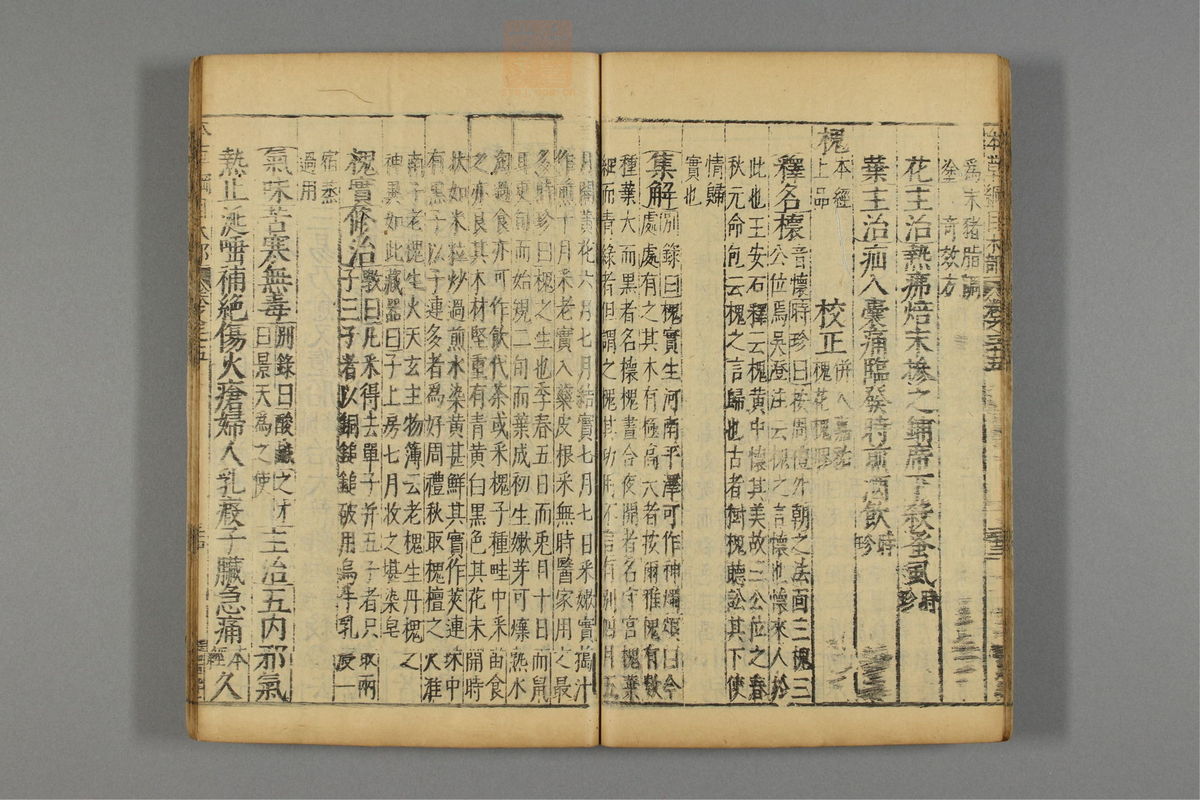 為末豬脂調
塗 奇效方
花主治熱痱焙末摻之鋪席下殺蚤虱時珍
葉主治疝入囊痛臨發時煎酒飲時珍
槐本經上品 校正併入嘉祐槐花槐膠
釋名櫰音懷時珍曰按周禮外朝之法面三槐三
公位焉吳澄注云槐之言懷也懷來人於
此也王安石釋云槐黃中懷其美故三公位之春
秋元命包云槐之言歸也古者樹槐聽訟其下使
情歸
實也
集解別錄曰槐實生河南平澤可作神燭頌曰今
處處有之其木有極高大者按爾雅槐有數
種葉大而黑者名櫰槐晝合夜開者名守宮槐葉
細而青綠者但謂之槐其功用不言有別四月五
月開黃花六月七月結實七月七日采嫩實搗汁
作煎十月采老實入藥皮根采無時醫家用之最
多時珍曰槐之生也季春五日而兔目十日而鼠
耳更旬而始規二旬而葉成初生嫩芽可煠熟水
淘過食亦可作飲代茶或采槐子種畦中采苗食
之亦良其木材堅重有青黃白黑色其花未開時
狀如米粒炒過煎水染黃甚鮮其實作莢連珠中
有黑子以子連多者為好周禮秋取槐檀之火淮
南子老槐生火天玄主物簿云老槐生丹槐之
神異如此藏器曰子上房七月收之堪染皂
槐實修治斅曰凡采得去單子并五子者只取兩
子三子者以銅鎚鎚破用烏牛乳浸一
宿蒸
過用
氣味苦寒無毒別錄曰酸鹹之才曰景天為之使主治五內邪氣
熱止涎唾補絕傷火瘡婦人乳瘕子臟急痛本經久